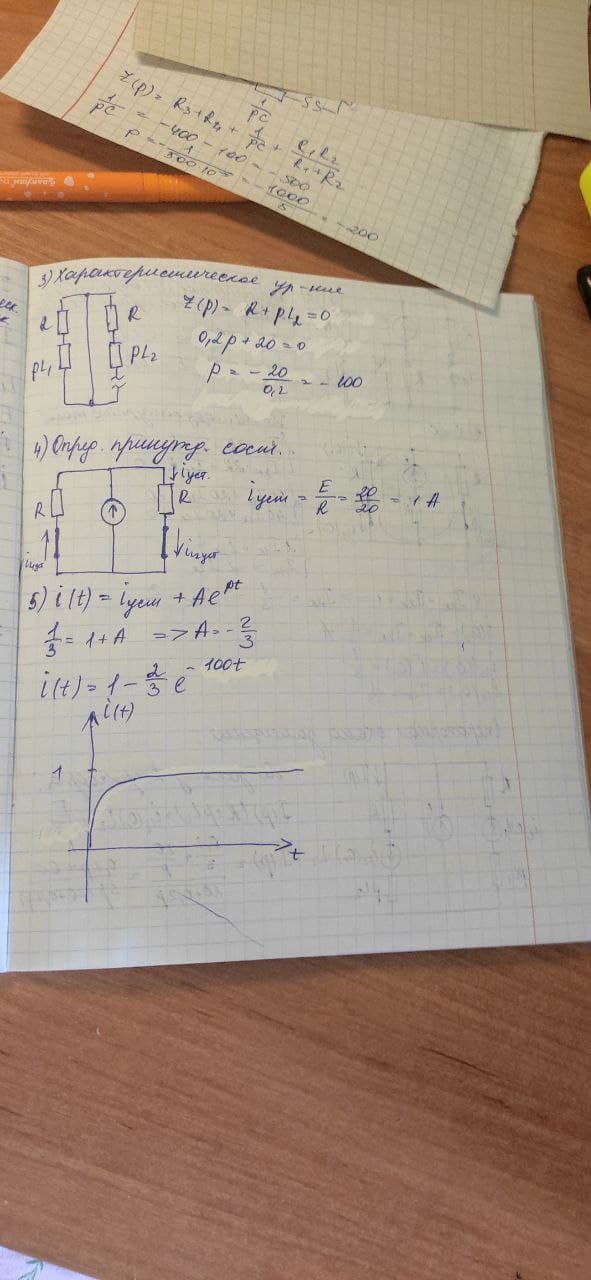 Z(p) = R3+R4 + 1/pC + R1R2/R1+R2
1/pC = -400 - 100 = -500
p = -1/500·10 = -1000/5 = -200
1/pC
3) Характеристическое ур-ние
R
R
pL1
pL2
Z(p) = R + pL2 = 0
0,2p + 20 = 0
p = -20/0,2 = -100
4) Опред. принужд. сост.
iуст.
R
R
i1уст
i2уст
iуст = E/R = 20/20 = 1 A
5) i(t) = iуст + Ae^pt
1/3 = 1 + A => A = -2/3
i(t) = 1 - 2/3 e^-100t
i(t)
1
t